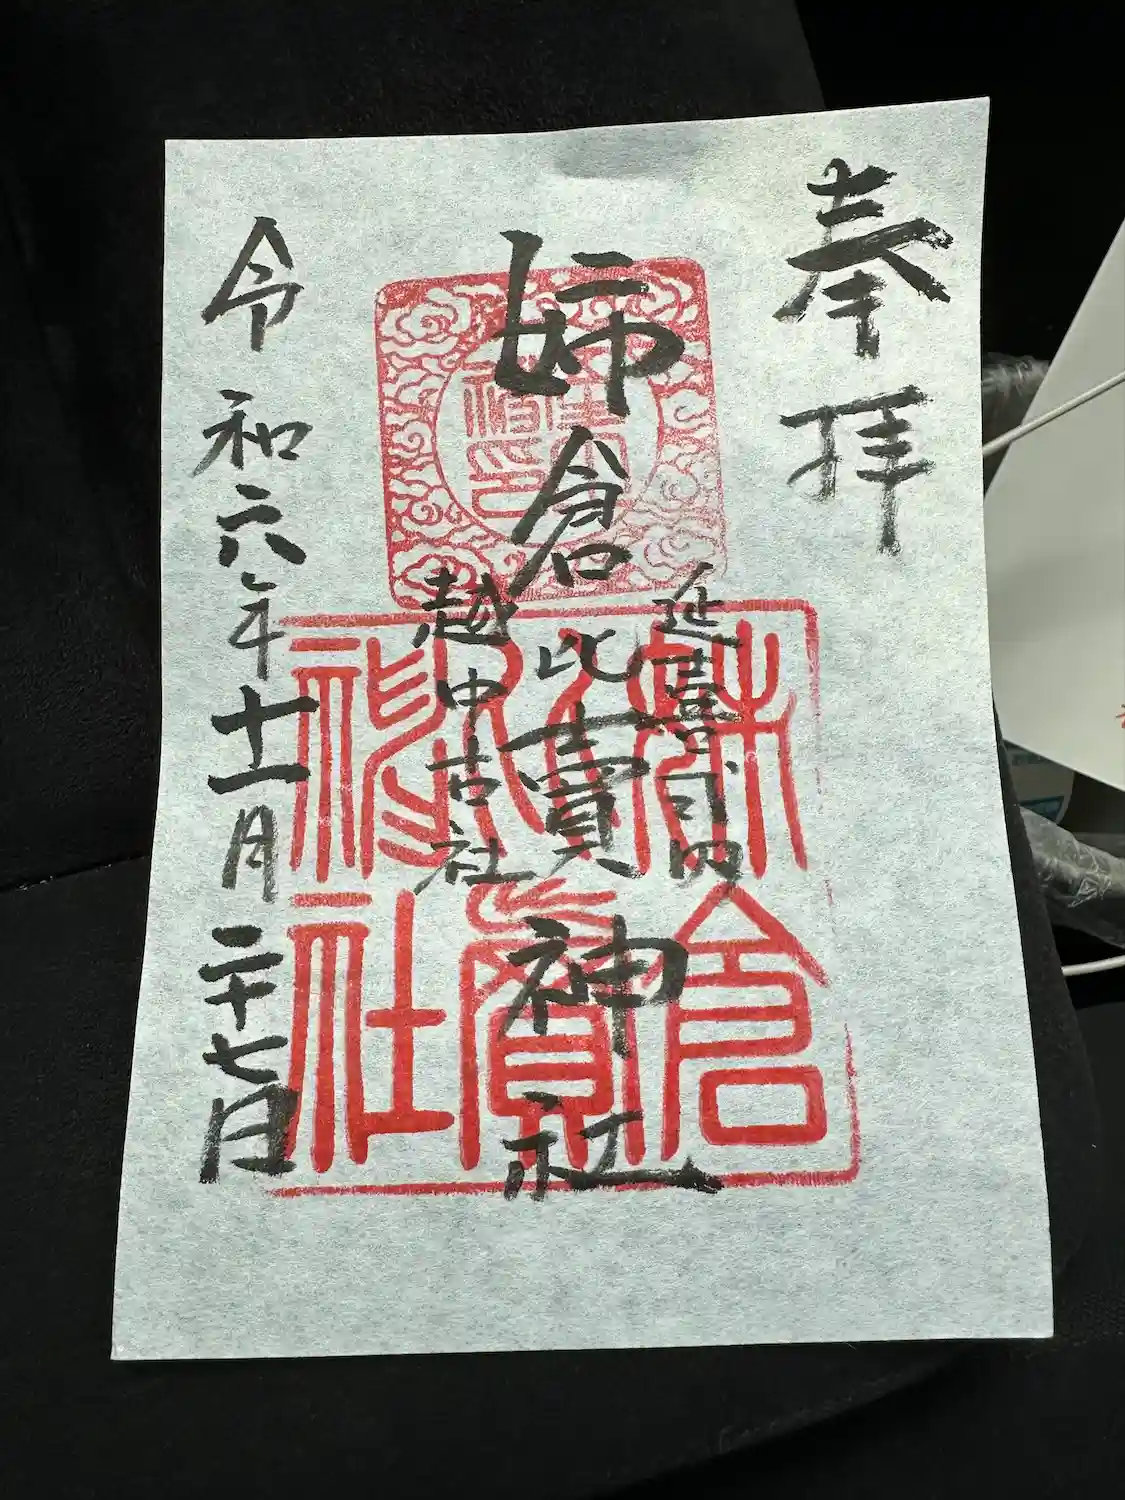 奉拝
延喜式内
姉倉比賣神社
越中古社
令和六年十一月二十七日
姉倉比賣神社